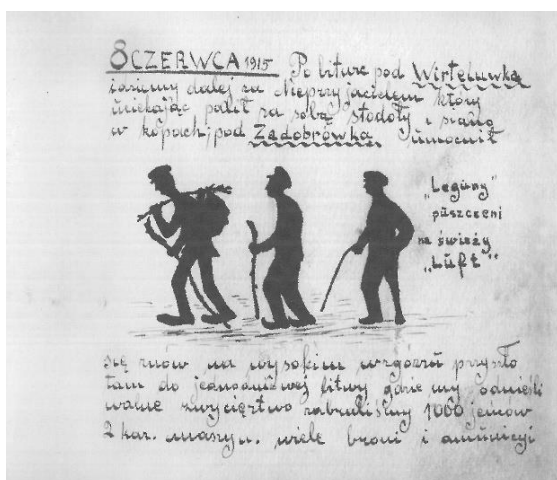 8 CZERWCA 1915 Po bitwe pod Wirteluwką
idziemy dalej za Nieprzyjacielem który
uciekając palił za sobą stodoły i siano
w kopach; pod Zadobrówką umocnił
„Leguny"
puszczeni
na świeży
„Luft"
się znów na wysokim wzgórzu przyszło
tam do jednodniowej bitwy gdzie my odnieśli
walne zwycięztwo zabraliśmy 1060 jeńców
2 kar. maszyn. wiele broni i amunicyi